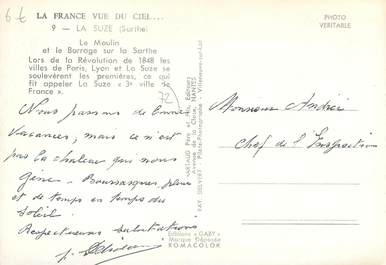 6t
LA FRANCE VUE DU CIEL...
9 - LA SUZE (Sarthe)
Le Moulin
et le Barrage sur la Sarthe
Lors de la Révolution de 1848 les
villes de Paris, Lyon et La Suze se
soulevèrent les premières, ce qui
fit appeler La Suze « 3e ville de
France ».
72
PHOTO
VERITABLE
Nous passons de bonnes
vacances, mais ce n'est
pas la chaleur qui nous
gêne. Bourrasques, pluie
et de temps en temps du
soleil.
Respectueuses salutations
ARTAUD Père et Fils, Editeurs
Avenue de la Close, NANTES
RAY. DELVERT - Pilote-Photographe - Villeneuve-sur-Lot
Editions "GABY"
Marque Déposée
ROMACOLOR
Monsieur André
Chef de l'Inspection